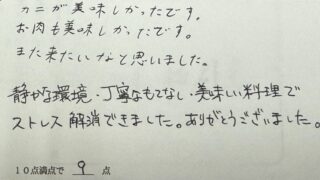 カニが美味しかったです。
お肉も美味しかったです。
また来たいなと思いました。
静かな環境・丁寧なもてなし・美味しい料理で
ストレス解消できました。ありがとうございました。
10点満点で 9 点